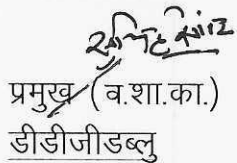 प्रमुख (व.शा.का.)
डीडीजीडब्लु